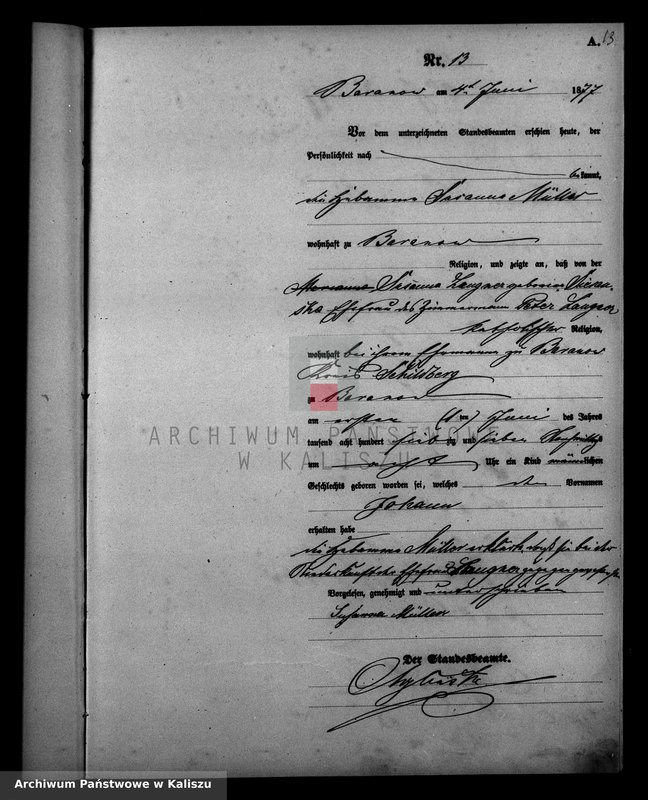 A. 13
Nr. 13
Baranow am 4t Juni 1877
Vor dem unterzeichneten Standesbeamten erschien heute, der
Persönlichkeit nach
bekannt,
die Hebamme Susanna Müller
wohnhaft zu Baranow
Religion, und zeigte an, daß von der
Marianna Susanna Langner geborene
Ehefrau des Zimmermann Peter Langner
katholischer Religion,
wohnhaft bei ihrem Ehemanne zu Baranow
Kreis Schildberg
zu Baranow
am ersten (1ten) Juni des Jahres
tausend acht hundert siebzig und sieben
um acht Uhr ein Kind männlichen
Geschlechts geboren worden sei, welches den Vornamen
Johann
erhalten habe
die Hebamme Müller erklärte, daß sie bei der
Niederkunft der Ehefrau Langner zugegen gewesen sei
Vorgelesen, genehmigt und unterschrieben
Susanna Müller
Der Standesbeamte.
ARCHIWUM PAŃSTWOWE
W KALISZU
Archiwum Państwowe w Kaliszu